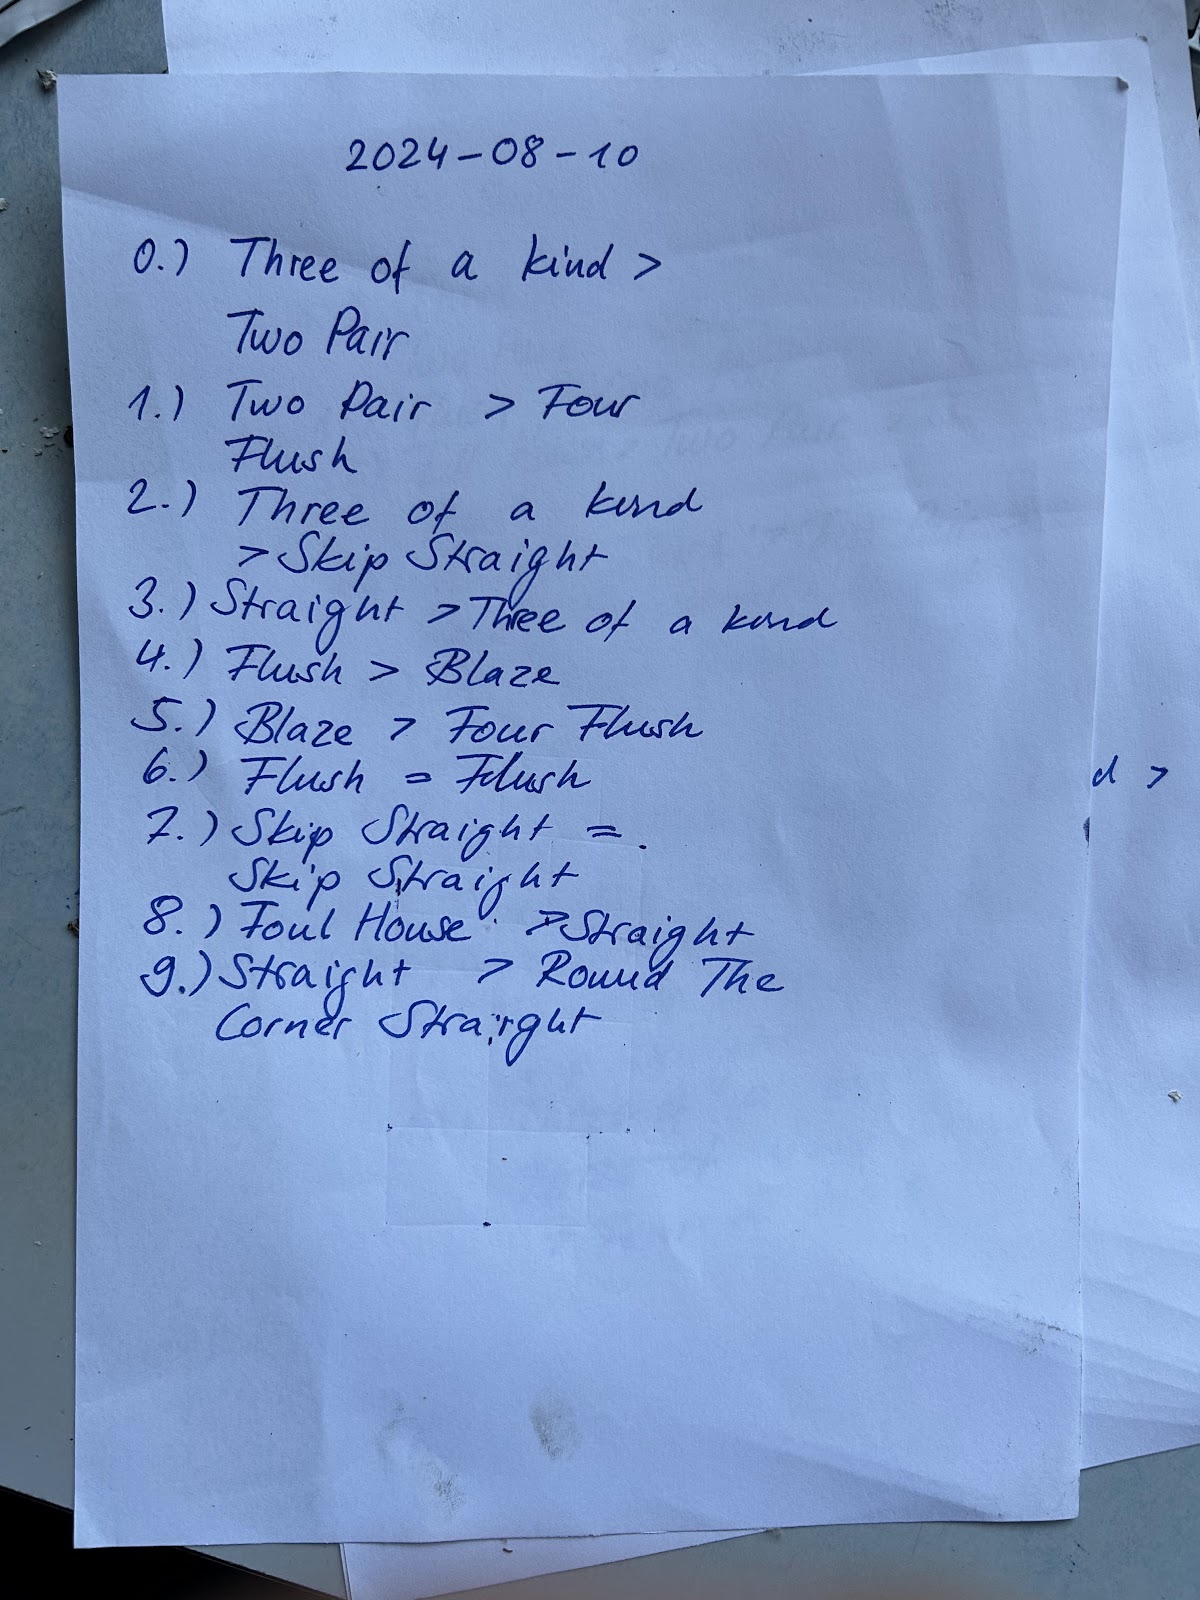 2024-08-10
0.) Three of a kind >
Two Pair
1.) Two Pair > Four
Flush
2.) Three of a kind
> Skip Straight
3.) Straight > Three of a kind
4.) Flush > Blaze
5.) Blaze > Four Flush
6.) Flush = Flush
7.) Skip Straight =
Skip Straight
8.) Foul House > Straight
9.) Straight > Round The
Corner Straight
d >